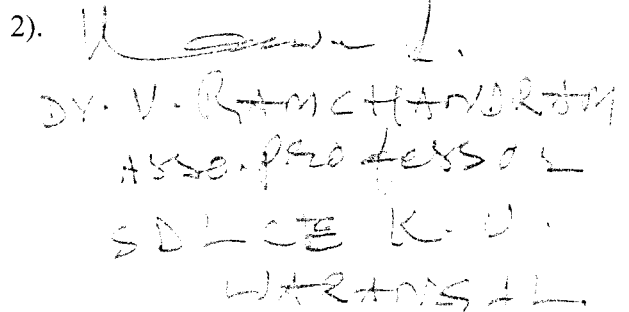 2).
Dr. V. RAMCHANDRAM
Asso. professor
SDLCE K.U.
WARANGAL.